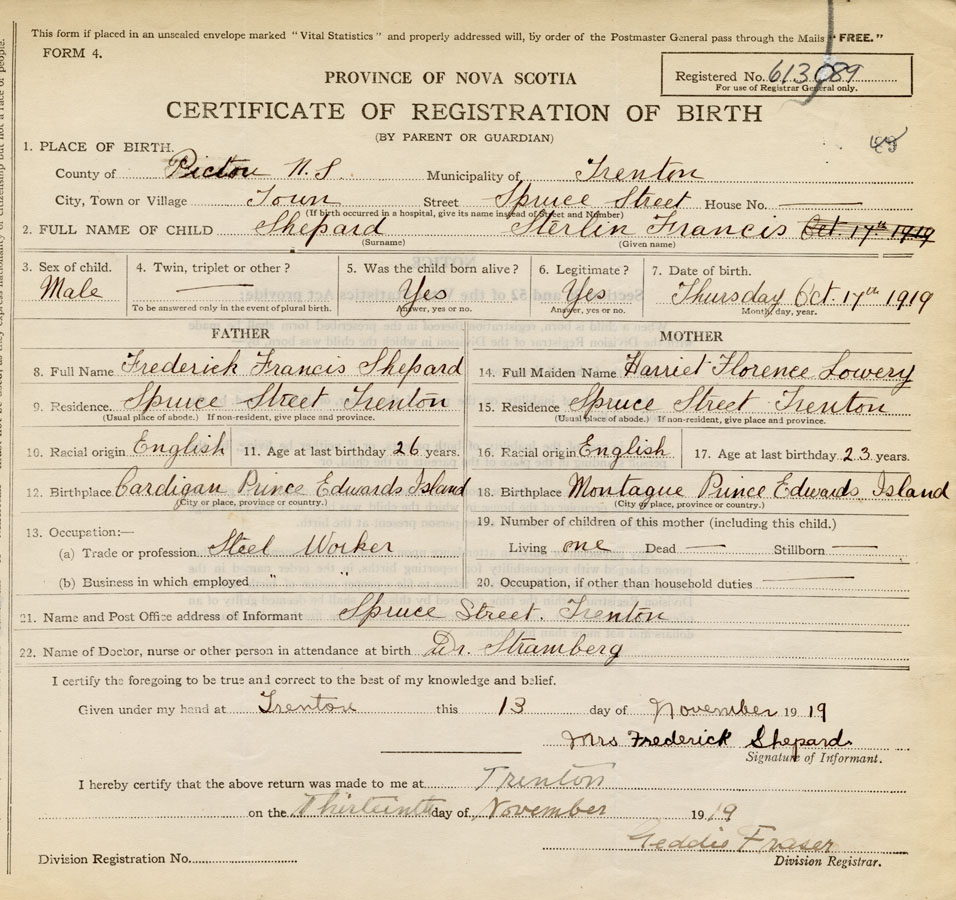 This form if placed in an unsealed envelope marked "Vital Statistics" and properly addressed will, by order of the Postmaster General pass through the Mails "FREE."
FORM 4.
Registered No. 613089
For use of Registrar General only.
PROVINCE OF NOVA SCOTIA
CERTIFICATE OF REGISTRATION OF BIRTH
(BY PARENT OR GUARDIAN)
1. PLACE OF BIRTH.
County of Pictou N.S. Municipality of Trenton
City, Town or Village Town Street Spruce Street House No. ——
(If birth occurred in a hospital, give its name instead of Street and Number)
2. FULL NAME OF CHILD Shepard Sterlin Francis Oct. 17th 1919
(Surname) (Given name)
3. Sex of child. 4. Twin, triplet or other? 5. Was the child born alive? 6. Legitimate? 7. Date of birth.
Male —— Yes Yes Thursday Oct. 17th 1919
To be answered only in the event of plural birth. Answer, yes or no. Answer, yes or no. Month, day, year.
FATHER MOTHER
8. Full Name Frederick Francis Shepard 14. Full Maiden Name Harriet Florence Lowery
9. Residence. Spruce Street Trenton 15. Residence Spruce Street Trenton
(Usual place of abode.) If non-resident, give place and province. (Usual place of abode.) If non-resident, give place and province.
10. Racial origin English 11. Age at last birthday 26 years. 16. Racial origin English 17. Age at last birthday 23 years.
12. Birthplace Cardigan Prince Edwards Island 18. Birthplace Montague Prince Edwards Island
(City or place, province or country.) (City or place, province or country.)
13. Occupation:— 19. Number of children of this mother (including this child.)
(a) Trade or profession Steel Worker Living one Dead — Stillborn ——
(b) Business in which employed " " 20. Occupation, if other than household duties ——
21. Name and Post Office address of Informant Spruce Street. Trenton
22. Name of Doctor, nurse or other person in attendance at birth Dr. Stramberg
I certify the foregoing to be true and correct to the best of my knowledge and belief.
Given under my hand at Trenton this 13 day of November 1919
Mrs Frederick Shepard
Signature of Informant.
I hereby certify that the above return was made to me at Trenton
on the Thirteenth day of November 1919
Geddie Fraser
Division Registration No. Division Registrar.